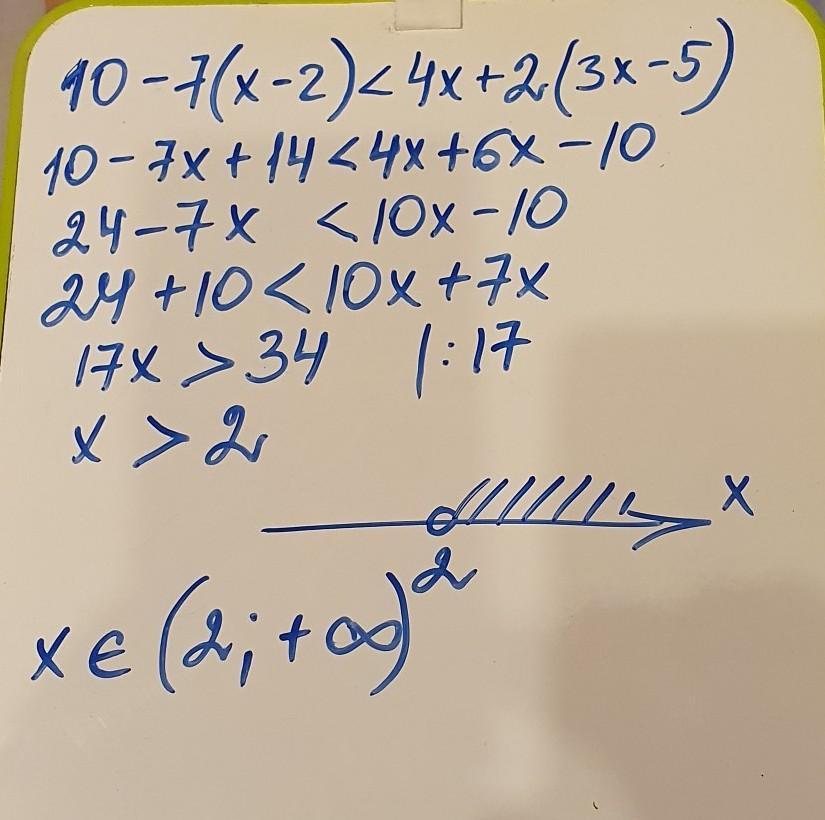 10-7(x-2)<4x+2(3x-5)
10-7x+14<4x+6x-10
24-7x <10x-10
24+10<10x+7x
17x>34 |:17
x>2
x
2
x∈(2;+∞)